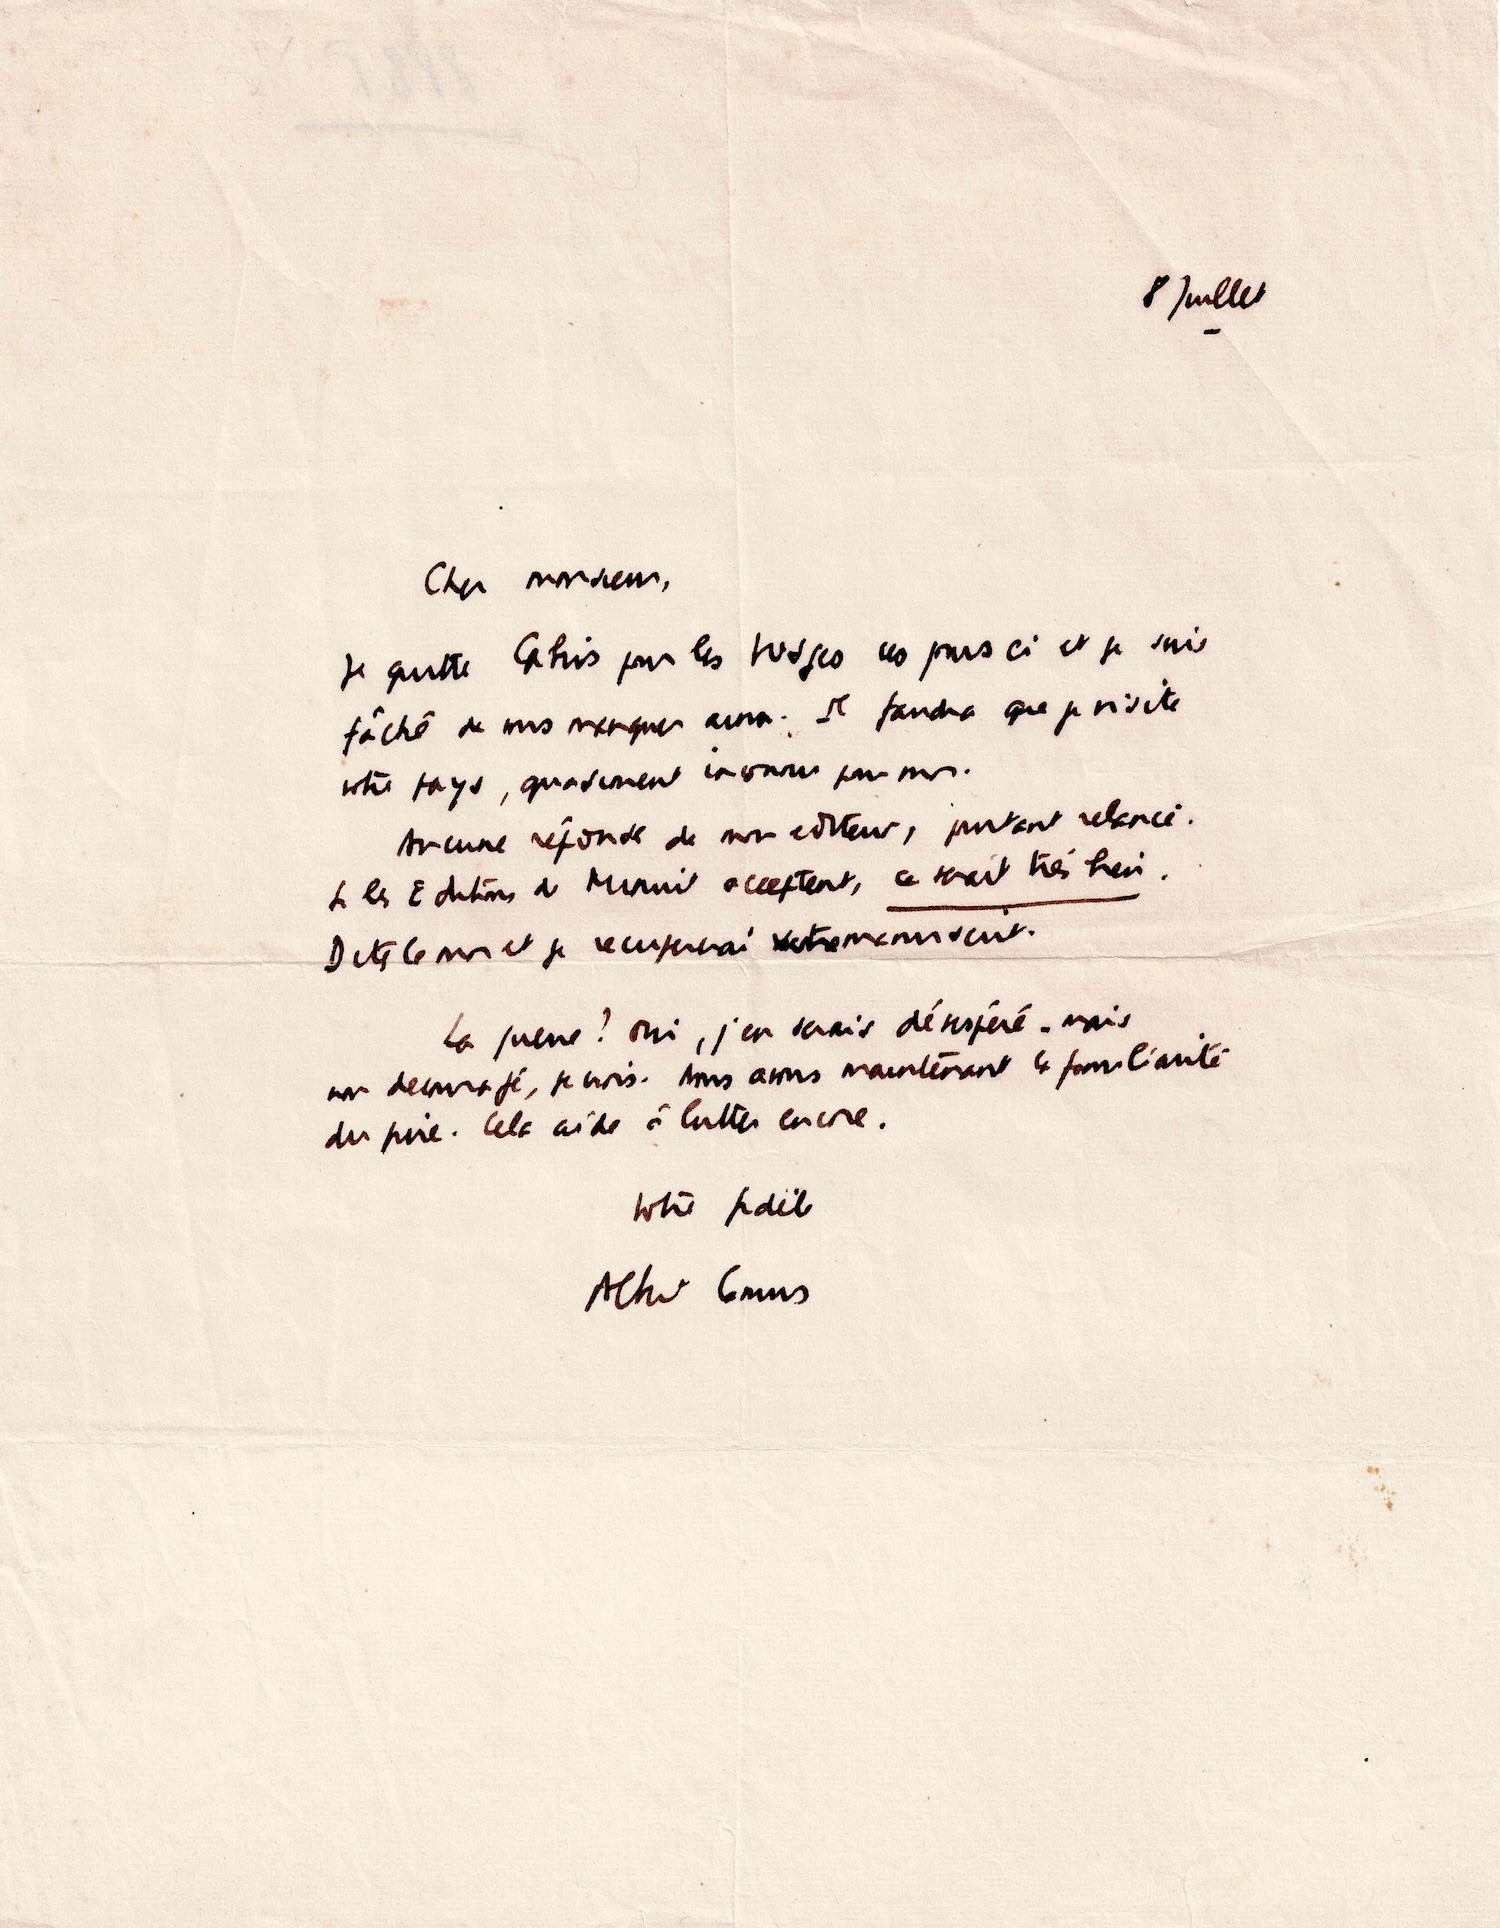 8 Juillet
Cher monsieur,
Je quitte Cabris pour les Vosges ces jours ci et je suis
fâché de vous manquer ainsi. Il faudra que je visite
votre pays, quasiment inconnu pour moi.
Aucune réponse de mon editeur, pourtant relancé.
Si les Editions de Minuit acceptent, ce serait très bien.
Dites le moi et je recupererai votre manuscrit.
La guerre ? Oui, j'en serais désespéré. Mais
non decouragé, je crois. Nous avons maintenant la familiarité
du pire. Cela aide à lutter encore.
Votre fidèle
Albert Camus